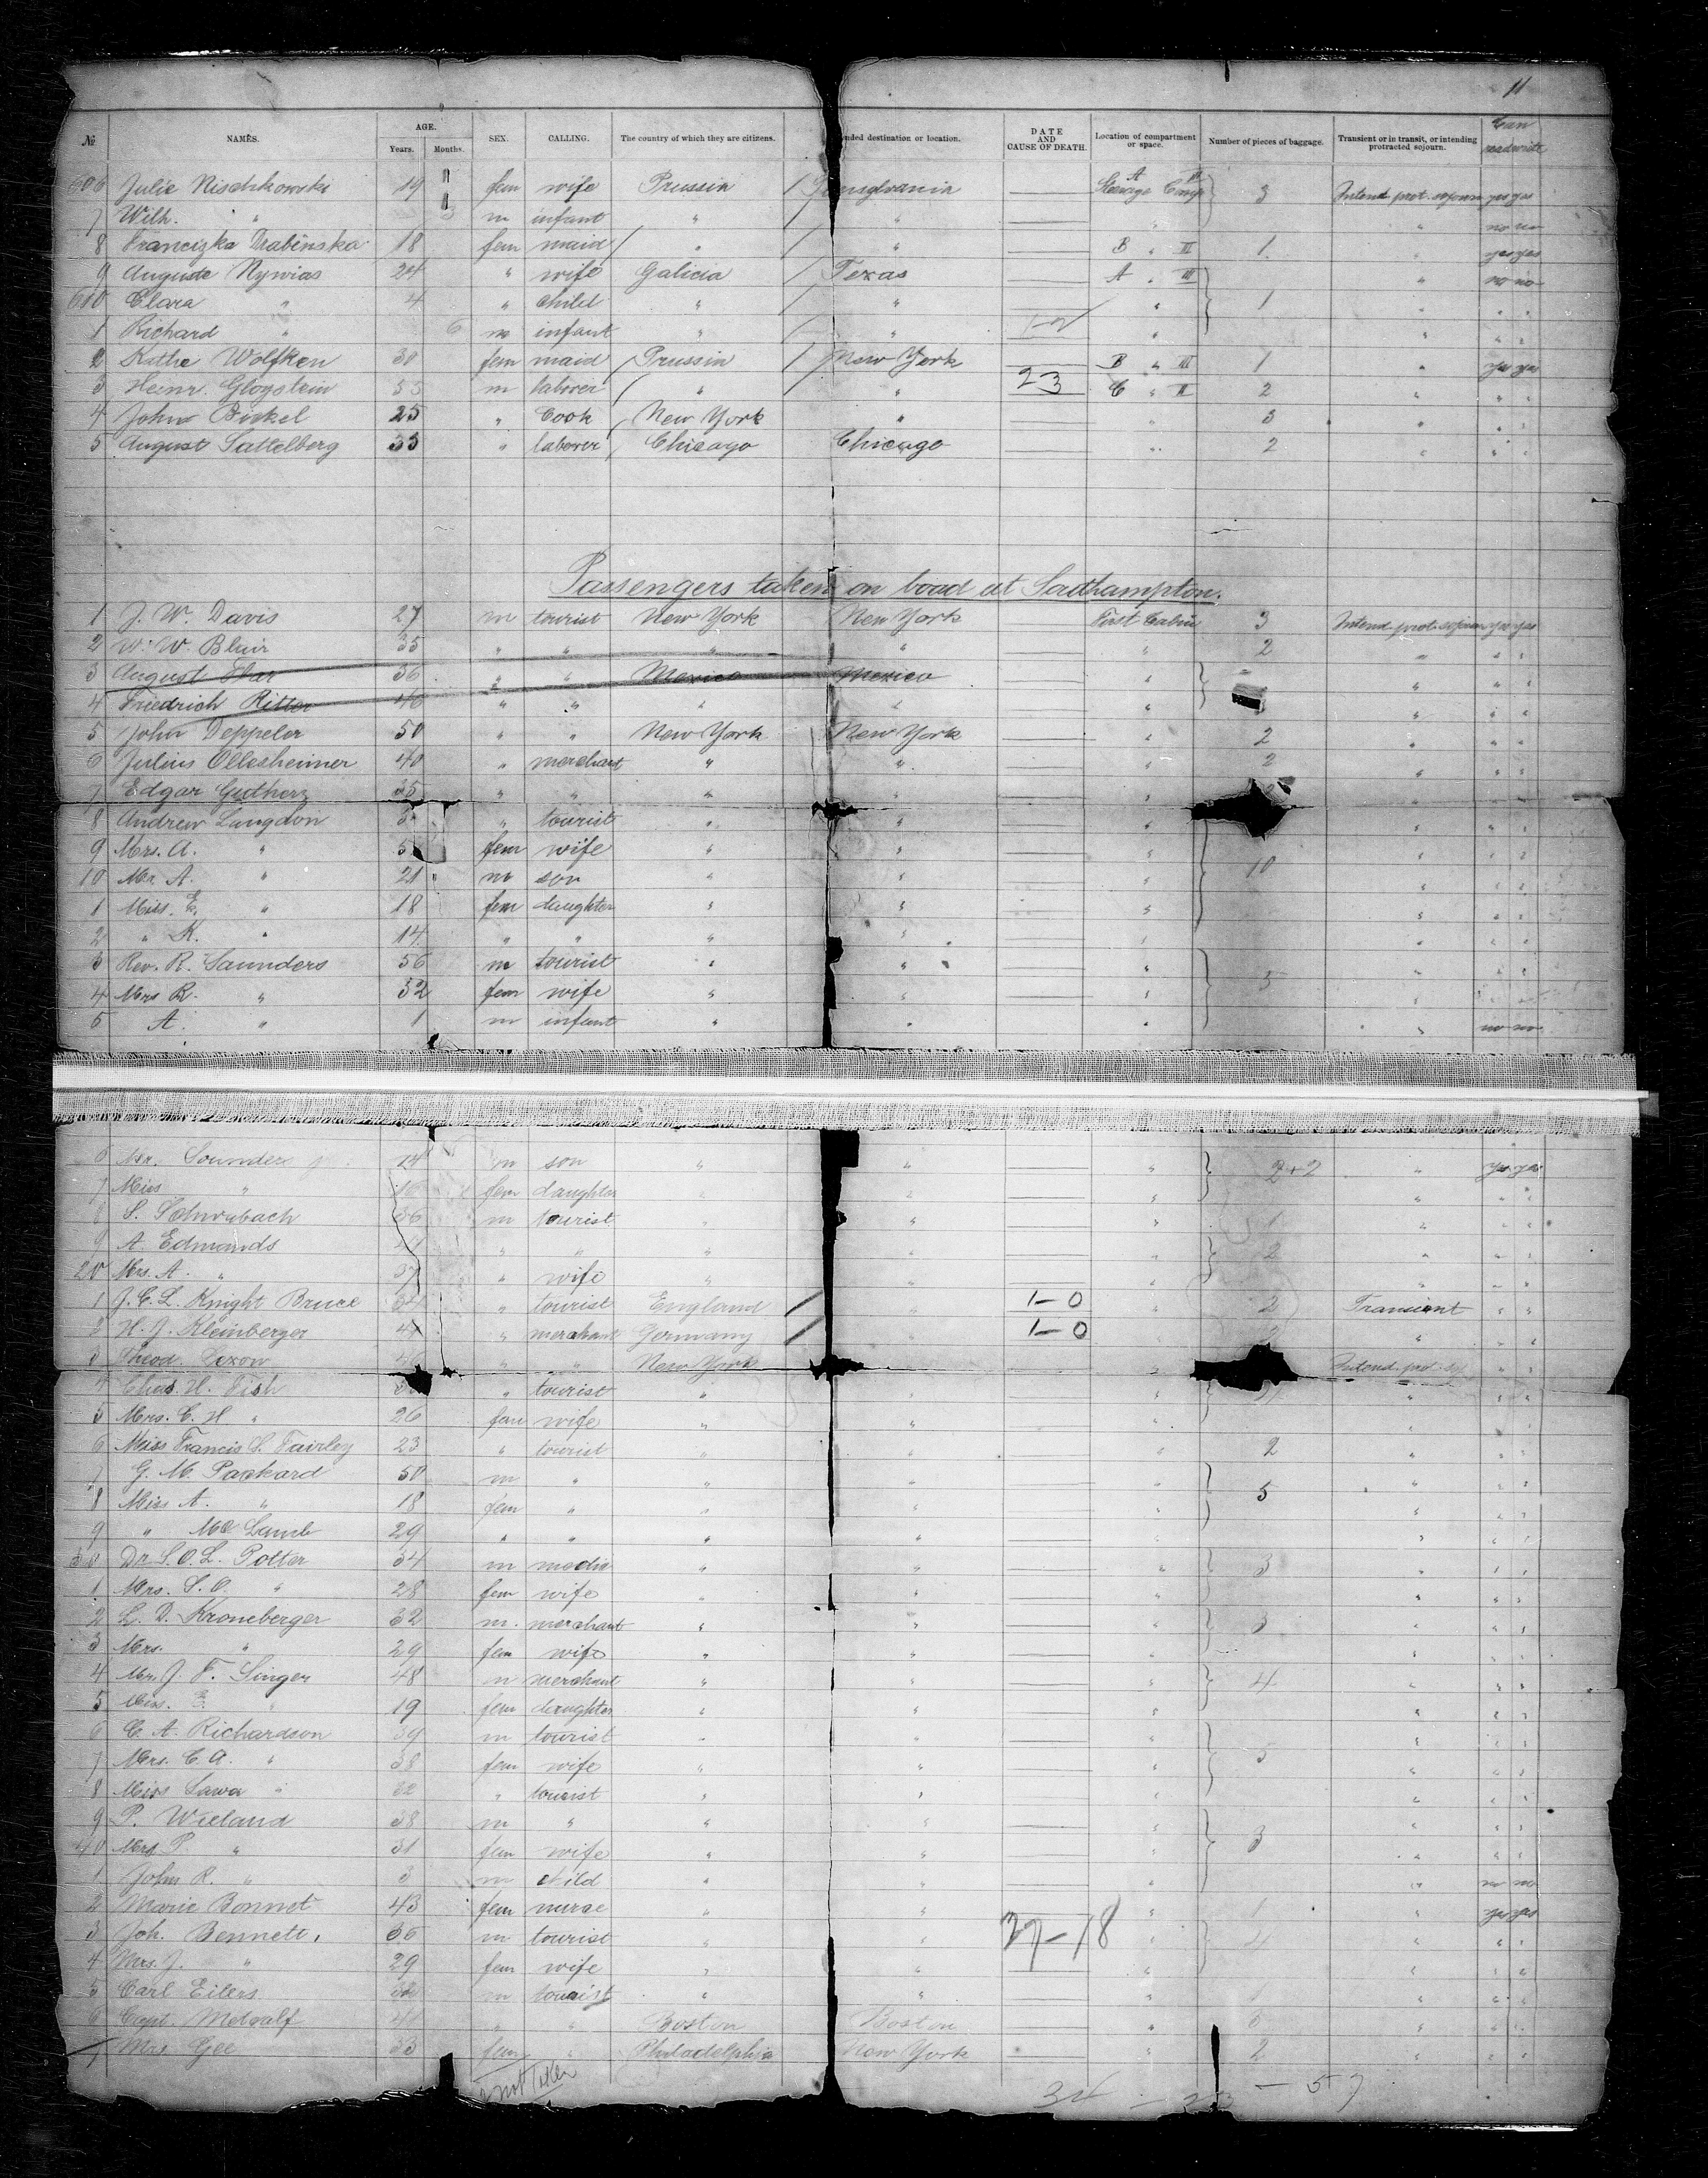 11
No. NAMES. AGE. Years. Months. SEX. CALLING. The country of which they are citizens. nded destination or location. DATE AND CAUSE OF DEATH. Location of compartment or space. Number of pieces of baggage. Transient or in transit, or intending protracted sojourn. Can read write
606 Julie Nischkowski 19 fem wife Prussia / Pensylvania Steerage Comp A 3 Intend prot. sojourn yes yes
7 Wilh. " m infant " / " " no no
8 Franciszka Drabinska 18 fem maid / " / " B " II 1. " yes yes
9 Auguste Nywias 24 " wife Galicia / Texas A " III " no no
610 Clara " 4 " child " / " " 1 " " "
1 Richard " 6 m infant " / " " " " "
2 Kathe Wolfken 30 fem maid / Prussia / New York B " III 1 " yes yes
3 Heinr. Gloystein 35 m laborer / " / " 23 C " II 2 " " "
4 John Bickel 25 " Cook / New York " " 3 " " "
5 August Sattelberg 35 " laborer / Chicago Chicago " 2 " " "
Passengers taken on boad at Southampton.
1 J. W. Davis 27 m tourist New York New York First Cabin 3 Intend prot. sojourn yes yes
2 W. W. Blair 35 " " " " " 2 " " "
3 August 36 " " Mexico Mexico " " " "
4 Friedrich Ritter 46 " " " " " " " "
5 John Deppeler 50 " " New York New York " 2 " " "
6 Julius Ollesheimer 40 " merchant " " " 2 " " "
7 Edgar Gutherz 35 " " " " " " " "
8 Andrew Langdon " tourist " " " " " "
9 Mrs. A. " 5 fem wife " " " " " "
10 Mr. A. " 21 m son " " " 10 " " "
1 Miss. E. " 18 fem daughter " " " " " "
2 " K. " 14 " " " " " " "
3 Rev. R. Saunders 56 m tourist " " " " " "
4 Mrs R. " 32 fem wife " " " 5 " " "
5 A. " 1 m infant " " " " no no
6 Mr. Sounder 14 m son " " " 2+2 " yes yes
7 Miss " 16 fem daughter " " " " " "
8 S. Schwabach 36 m tourist " " " 1 " " "
9 A. Edmands " " " " " 2 " " "
20 Mrs. A. " 37 " wife " " " " " "
1 J. C. L. Knight Bruce 34 " tourist England / " 1-0 " 2 Transient " "
2 H. J. Kleinberger 44 " merchant Germany / " 1-0 2 " " "
3 Theod. " " New York " Intend. prot. " "
4 Chas. H. Fish " tourist " " " " " "
5 Mrs. C. H " 26 fem wife " " " " " "
6 Miss Francis S. Fairley 23 " tourist " " " 2 " " "
7 G. M. Packard 50 m " " " " " " "
8 Miss A. " 18 fem " " " " 5 " " "
9 " Mc Lamb 29 " " " " " " " "
30 Dr S. O. L. Potter 34 m medic " " " 3 " " "
1 Mrs. S. O. " 28 fem wife " " " " " "
2 L. D. Kroneberger 32 m. merchant " " " 3 " " "
3 Mrs. " 29 fem wife " " " " " "
4 Mr. J. F. Singer 48 m merchant " " " 4 " " "
5 Miss. E. " 19 fem daughter " " " " " "
6 C. A. Richardson 39 m tourist " " " " " "
7 Mrs. C. A. " 38 fem wife " " " 5 " " "
8 Miss Lawa " 32 " tourist " " " " " "
9 P. Wieland 38 m " " " " " " "
40 Mrs P. " 31 fem wife " " " 3 " " "
1 John R. " 3 m child " " " " no no
2 Marie Bonnet 43 fem nurse " " " 1 " yes yes
3 Joh. Bennett. 36 m tourist " " 27-18 " 4 " " "
4 Mrs. J. " 29 fem wife " " " " " "
5 Carl Eilers 32 m tourist " " " 1 " " "
6 Capt. Metcalf " " Boston Boston " 3 " " "
7 Mrs Gee 33 fem " Philadelphia New York " 2 " " "
2 not taken
34 - 23 - 57